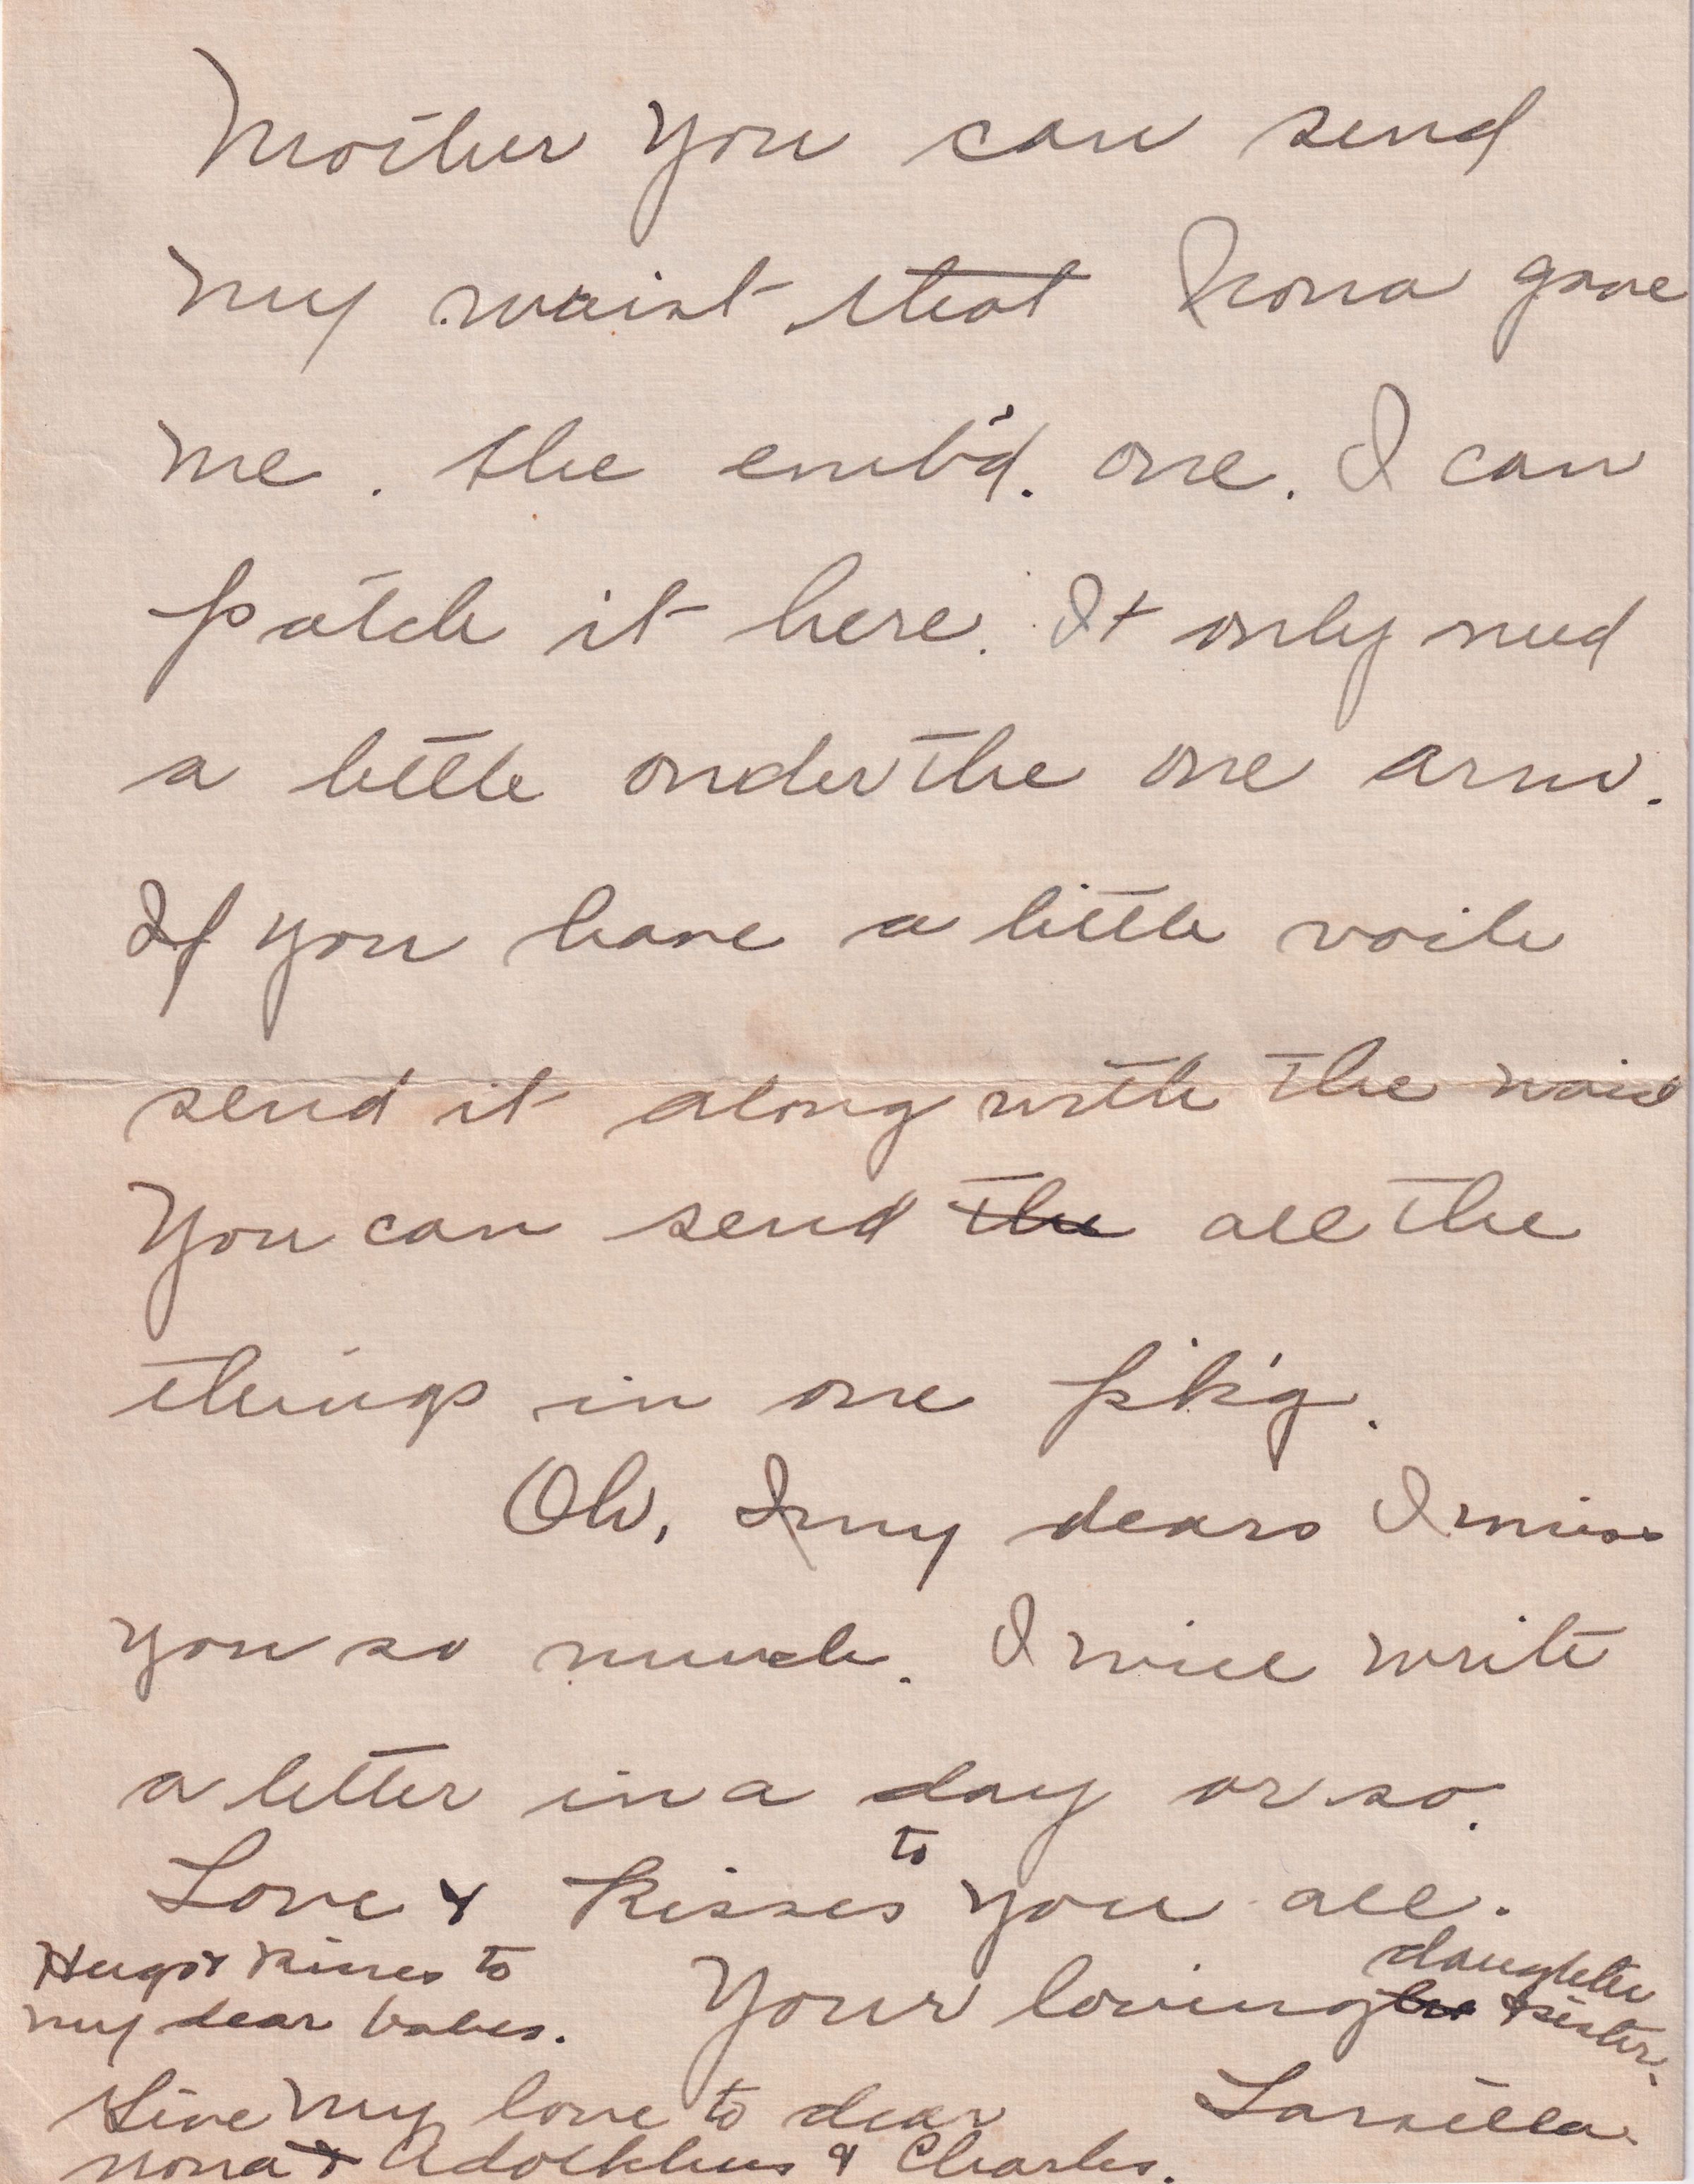 Mother you can send
my waist that Nona gave
me. the emb'd. one. I can
patch it here. It only need
a little onder the one arm.
If you have a little voile
send it along with the wais
You can send the all the
things in one pk'g.
Oh, my dears I miss
you so much. I will write
a letter in a day or so.
to
Love & Kisses you all.
Hugs & kisses to
my dear babes.
Your loving daughter
& sister.
Give my love to dear
Nona & Adolphus & Charles.